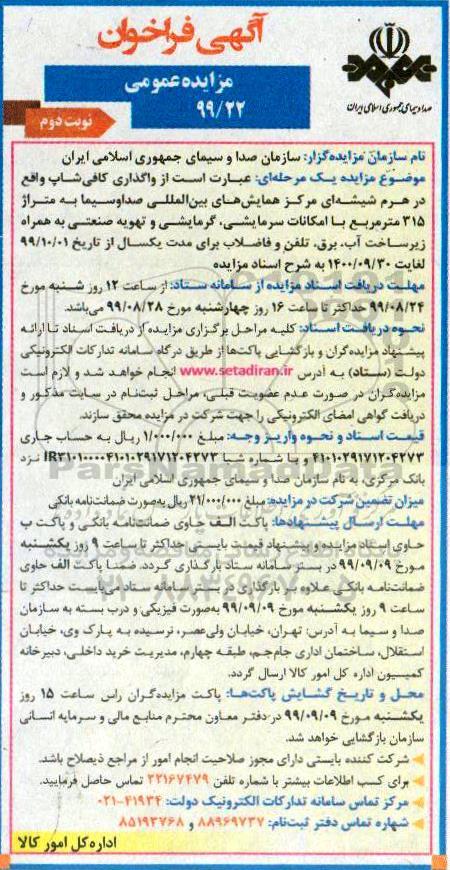 آگهی فراخوان
مزایده عمومی
۹۹/۲۲
نوبت دوم
صدا و سیمای جمهوری اسلامی ایران
نام سازمان مزایده‌گزار: سازمان صدا و سیمای جمهوری اسلامی ایران
موضوع مزایده یک مرحله‌ای: عبارت است از واگذاری کافی‌شاپ واقع
در هرم شیشه‌ای مرکز همایش‌های بین‌المللی صداوسیما به متراژ
۳۱۵ مترمربع با امکانات سرمایشی، گرمایشی و تهویه صنعتی به همراه
زیرساخت آب، برق، تلفن و فاضلاب برای مدت یکسال از تاریخ ۹۹/۱۰/۰۱
لغایت ۱۴۰۰/۰۹/۳۰ به شرح اسناد مزایده
مهلت دریافت اسناد مزایده از سامانه ستاد: از ساعت ۱۲ روز شنبه مورخ
۹۹/۰۸/۲۴ حداکثر تا ساعت ۱۶ روز چهارشنبه مورخ ۹۹/۰۸/۲۸ می‌باشد.
نحوه دریافت اسناد: کلیه مراحل برگزاری مزایده از دریافت اسناد تا ارائه
پیشنهاد مزایده‌گران و بازگشایی پاکت‌ها از طریق درگاه سامانه تدارکات الکترونیکی
دولت (ستاد) به آدرس www.setadiran.ir انجام خواهد شد و لازم است
مزایده‌گران در صورت عدم عضویت قبلی، مراحل ثبت‌نام در سایت مذکور و
دریافت گواهی امضای الکترونیکی را جهت شرکت در مزایده محقق سازند.
قیمت اسناد و نحوه واریز وجه: مبلغ ۱/۰۰۰/۰۰۰ ریال به حساب جاری
۴۱۰۱۰۲۹۱۷۱۲۰۴۲۷۳ و یا شماره شبا IR۳۱۰۱۰۰۰۰۴۱۰۱۰۲۹۱۷۱۲۰۴۲۷۳ نزد
بانک مرکزی، به نام سازمان صدا و سیمای جمهوری اسلامی ایران
میزان تضمین شرکت در مزایده: مبلغ ۲۱/۰۰۰/۰۰۰ ریال به‌صورت ضمانت‌نامه بانکی
مهلت ارسال پیشنهادها: پاکت الف حاوی ضمانت‌نامه بانکی و پاکت ب
حاوی اسناد مزایده و پیشنهاد قیمت بایستی حداکثر تا ساعت ۹ روز یکشنبه
مورخ ۹۹/۰۹/۰۹ در بستر سامانه ستاد بارگذاری گردد. ضمنا پاکت الف حاوی
ضمانت‌نامه بانکی علاوه بر بارگذاری در بستر سامانه ستاد می‌بایست حداکثر تا
ساعت ۹ روز یکشنبه مورخ ۹۹/۰۹/۰۹ به‌صورت فیزیکی و درب بسته به سازمان
صدا و سیما به آدرس: تهران، خیابان ولی‌عصر، نرسیده به پارک وی، خیابان
استقلال، ساختمان اداری جام‌جم، طبقه چهارم، مدیریت خرید داخلی، دبیرخانه
کمیسیون اداره کل امور کالا ارسال گردد.
محل و تاریخ گشایش پاکت‌ها: پاکت مزایده‌گران راس ساعت ۱۵ روز
یکشنبه مورخ ۹۹/۰۹/۰۹ در دفتر معاون محترم منابع مالی و سرمایه انسانی
سازمان بازگشایی خواهد شد.
شرکت کننده بایستی دارای مجوز صلاحیت انجام امور از مراجع ذیصلاح باشد.
برای کسب اطلاعات بیشتر با شماره تلفن ۲۲۱۶۷۴۷۹ تماس حاصل فرمایید.
مرکز تماس سامانه تدارکات الکترونیک دولت: ۴۱۹۳۴-۰۲۱
شماره تماس دفتر ثبت‌نام: ۸۸۹۶۹۷۳۷ و ۸۵۱۹۳۷۶۸
اداره کل امور کالا
ParsNamadData